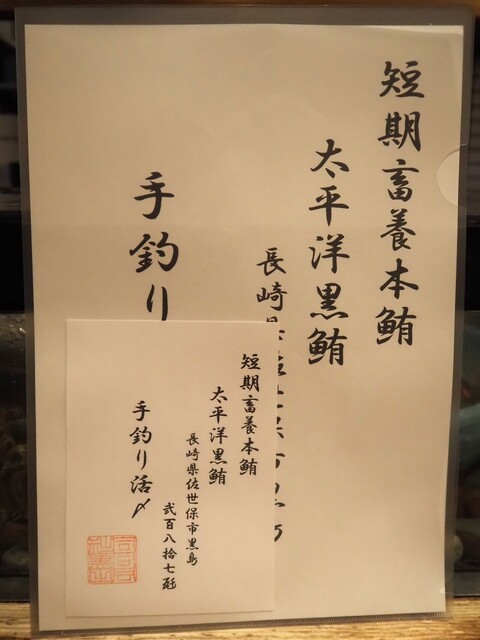 短期畜養本鮪
太平洋黒鮪
長崎
手釣り
短期畜養本鮪
太平洋黒鮪
長崎県佐世保市黒島
弐百八拾七瓩
手釣り活〆